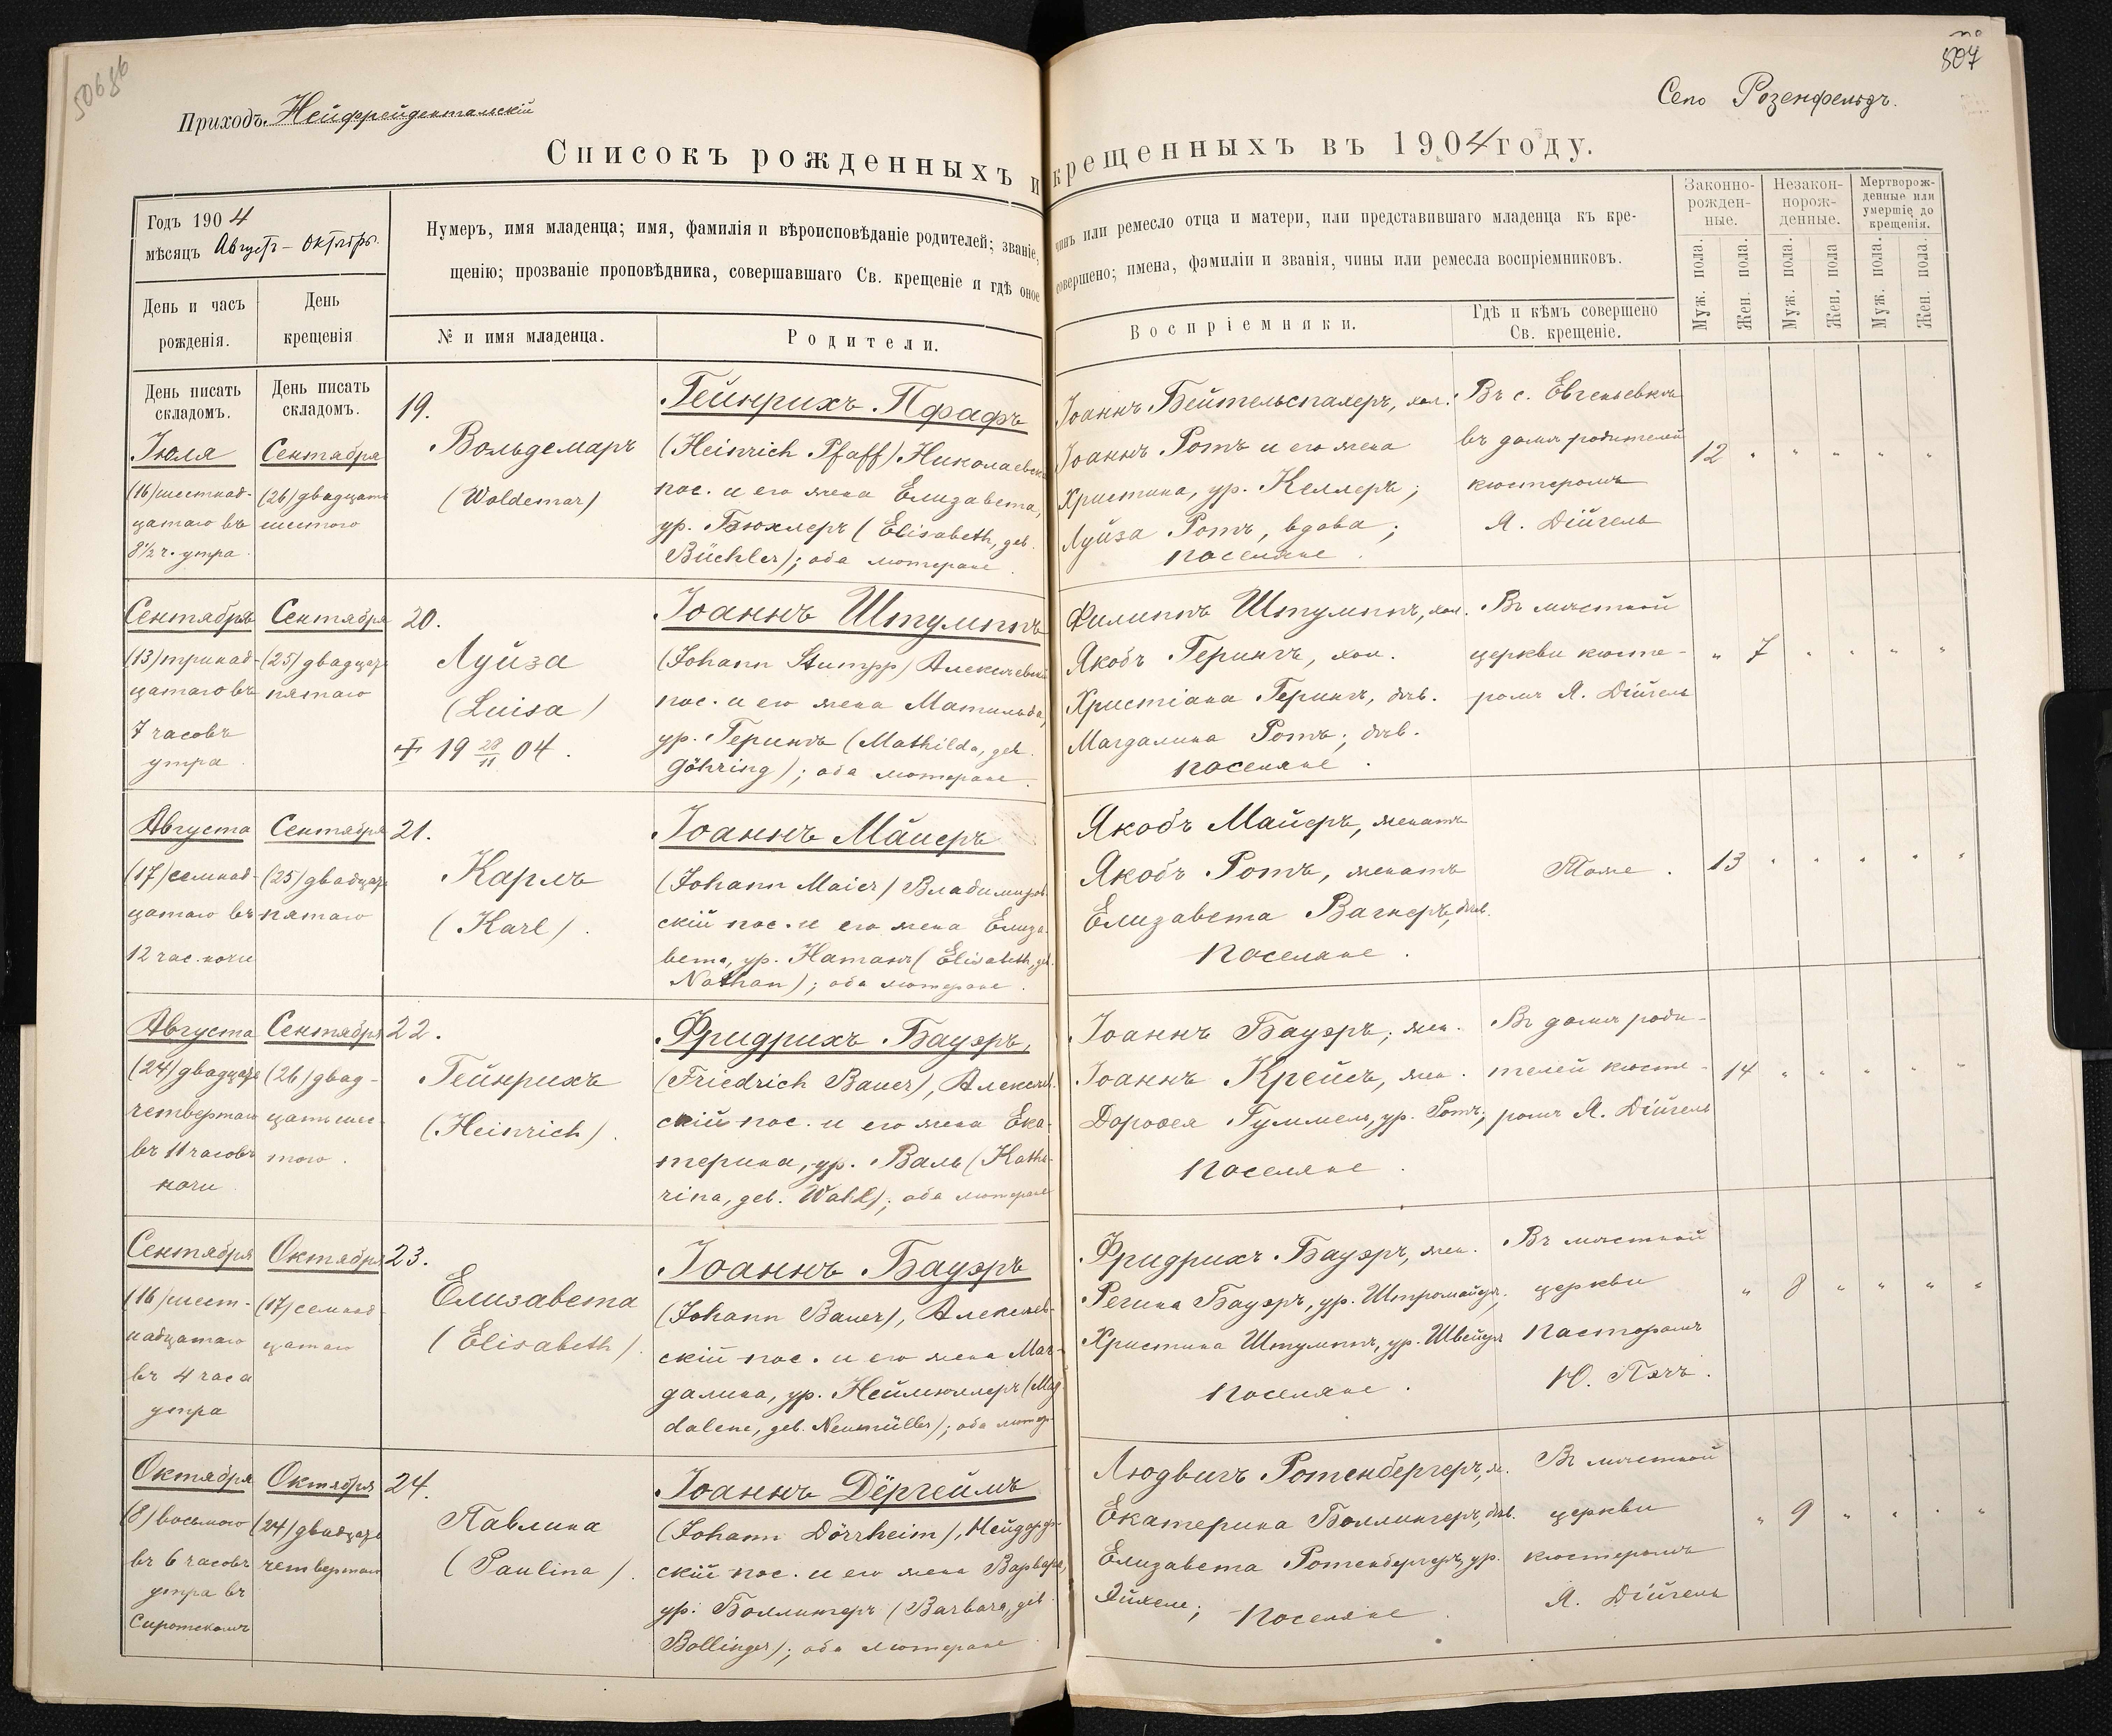 50686
807
Приходъ. Нейфрейдентальскій
Село Розенфельдъ.
Списокъ рожденныхъ и крещенныхъ въ 1904 году.
Годъ 1904
мѣсяцъ Августъ - Октябрь.
Нумеръ, имя младенца; имя, фамилія и вѣроисповѣданіе родителей; званіе, чинъ или ремесло отца и матери, или представившаго младенца къ кре-
щенію; прозваніе проповѣдника, совершавшаго Св. крещеніе и гдѣ оное совершено; имена, фамиліи и званія, чины или ремесла воспріемниковъ.
Законно-
рожден-
ные.
Незакон-
норож-
денные.
Мертворож-
денные или
умершіе до
крещенія.
Муж. пола.
Жен. пола.
Муж. пола.
Жен. пола
Муж. пола.
Жен. пола.
День и часъ
рожденія.
День
крещенія
№ и имя младенца.
Родители.
Воспріемники.
Гдѣ и кѣмъ совершено
Св. крещеніе.
День писать
складомъ.
День писать
складомъ.
Іюля
(16) шестнад-
цатаго въ
8 1/2 ч. утра.
Сентября
(26) двадцать
шестого
19.
Вольдемаръ
(Woldemar)
Гейнрихъ Пфафъ
(Heinrich Pfaff) Николаевск
пос. и его жена Елизавета,
ур. Бюхлеръ (Elisabeth, geb.
Büchler); оба лютеране.
Іоаннъ Бейтельспахеръ, хол.:
Іоаннъ Ротъ и его жена
Христина, ур. Келлеръ;
Луйза Ротъ, вдова;
поселяне.
Въ с. Евгеньевкѣ
въ домѣ родителей
кюстеромъ
Я. Дійгель
12 " " " " "
Сентября
(13) тринад-
цатаго въ
7 часовъ
утра.
Сентября
(25) двадцать
пятаго
20.
Луйза
(Luisa)
19 28/11 04.
Іоаннъ Штумппъ
(Johann Stumpp) Алексѣевскій
пос. и его жена Матильда,
ур. Герингъ (Mathilda, geb.
Göhring); оба лютеране.
Филиппъ Штумппъ, хол.
Якобъ Герингъ, хол.
Христіана Герингъ, дѣв.
Магдалина Ротъ; дѣв.
поселяне.
Въ мѣстной
церкви кюсте-
ромъ Я. Дійгель
" 7 " " " "
Августа
(17) семнад-
цатаго въ
12 час. ночи
Сентября
(25) двадцать
пятаго
21.
Карлъ
(Karl).
Іоаннъ Майеръ
(Johann Maier) Владимиров
скій пос. и его жена Елиза-
вета, ур. Натанъ (Elisabeth, geb.
Nathan); оба лютеране.
Якобъ Майеръ, женатъ
Якобъ Ротъ, женатъ
Елизавета Вагнеръ, дѣв.
поселяне.
Тоже.
13 " " " " "
Августа
(24) двадцать
четвертаго
въ 11 часовъ
ночи.
Сентября
(26) двад-
цать шес-
того.
22.
Гейнрихъ
(Heinrich).
Фридрихъ Бауэръ,
(Friedrich Bauer), Алексѣев-
скій пос. и его жена Ека-
терина, ур. Валь (Katha-
rina, geb. Wahl); оба лютеране
Іоаннъ Бауэръ; жен.
Іоаннъ Крейсъ, жен.
Доротея Гуммель, ур. Ротъ;
поселяне.
Въ домѣ роди-
телей кюсте-
ромъ Я. Дійгель
14 " " " " "
Сентября
(16) шест-
надцатаго
въ 4 часа
утра
Октября
(17) семнад-
цатаго
23.
Елизавета
(Elisabeth).
Іоаннъ Бауэръ
(Johann Bauer), Алексѣев-
скій пос. и его жена Маг-
далина, ур. Неймюллеръ (Mag-
dalene, geb. Neumüller); оба лютер-
Фридрихъ Бауэръ, жен.
Регина Бауэръ, ур. Штромайеръ;
Христина Штумппъ, ур. Швейцеръ
поселяне.
Въ мѣстной
церкви
пасторомъ
Ю. Пэчъ.
" 8 " " " "
Октября
(8) восьмого
въ 6 часовъ
утра въ
Сиротскомъ
Октября
(24) двадцать
четвертаго
24.
Павлина
(Paulina).
Іоаннъ Дёргеймъ
(Johann Dörrheim), Нейдорф-
скій пос. и его жена Варвара,
ур. Боллингеръ (Barbara, geb.
Bollinger); оба лютеране.
Людвигъ Ротенбергеръ, ж.
Екатерина Боллингеръ, дѣв.
Елизавета Ротенбергеръ, ур.
Эйхеле;
поселяне.
Въ мѣстной
церкви
кюстеромъ
Я. Дійгель
" 9 " " " "